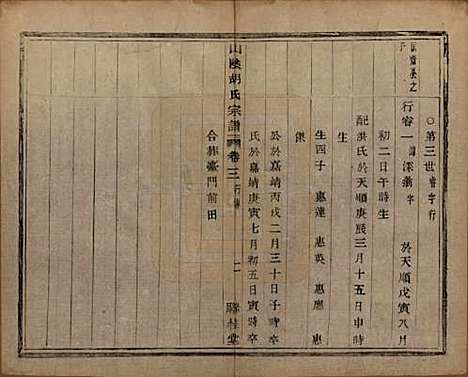 ○第三世睿字行
行睿一 諱深 字 於天順戊寅八月
初二日午時生
配洪氏於天順庚辰三月十五日申時
生
生四子 惠蓮 惠英 惠應 惠
傑
公於嘉靖丙戌二月三十日子時卒
氏於嘉靖庚寅七月初五日寅時卒
合葬臺門前田
山陰胡氏宗譜 卷三 行傳 二 堂